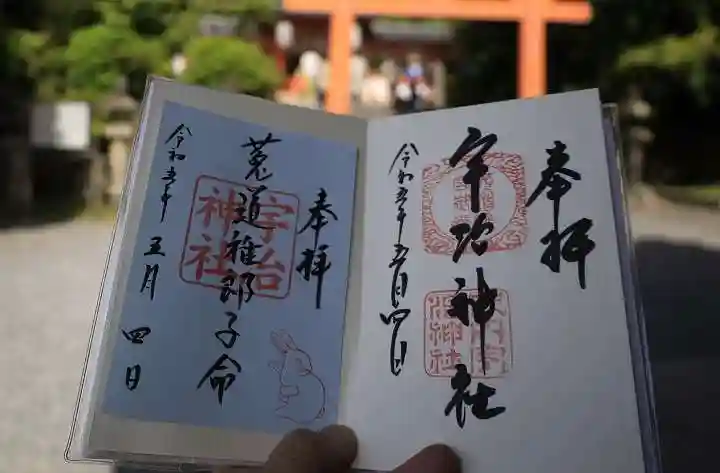 奉拝
宇治神社
令和五年五月四日
奉拝
菟道稚郎子命
宇治
神社
令和五年
五月
四日